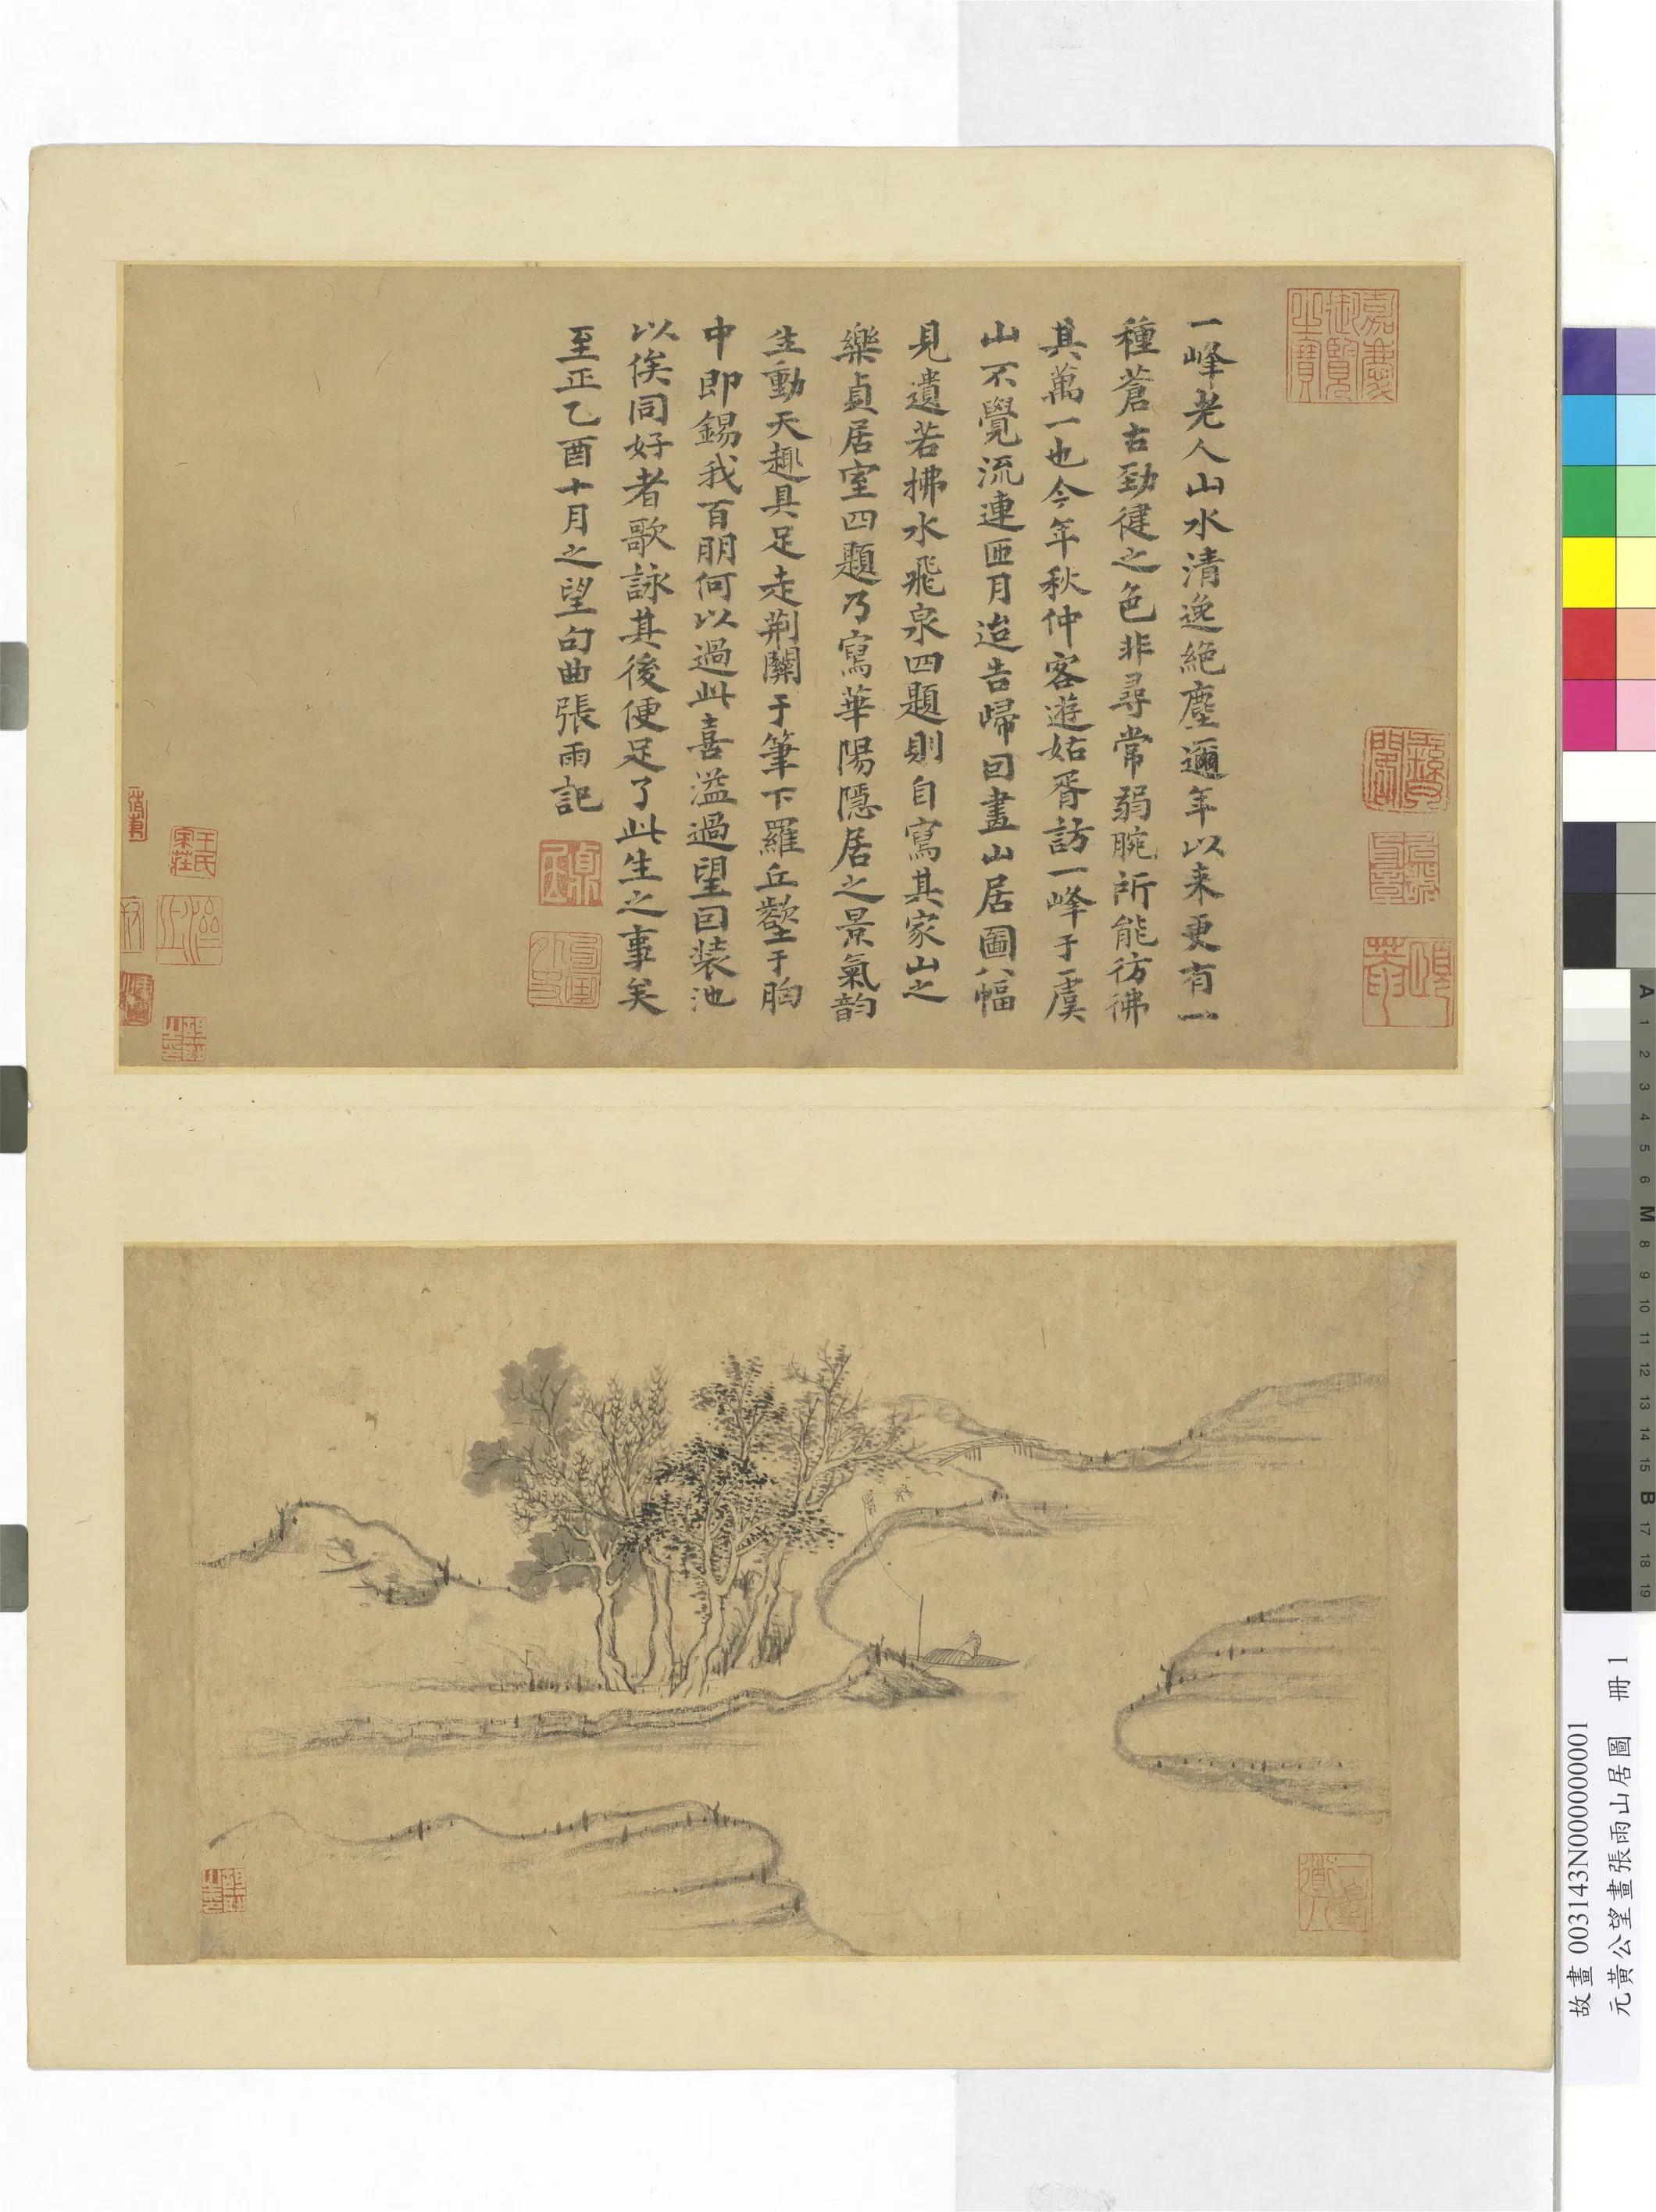 一峰老人山水清逸絕塵邇年以来更有一
種蒼古勁健之色非尋常弱腕所能彷彿
其萬一也今年秋仲客遊姑胥訪一峰于虞
山不覺流連匝月迨告歸回畫山居圖八幅
見遺若拂水飛泉四題則自寫其家山之
樂貞居室四題乃寫華陽隱居之景氣韵
生動天趣具足走荆關于筆下羅丘壑于胸
中即錫我百朋何以過此喜溢過望回装池
以俟同好者歌詠其後便足了此生之事矣
至正乙酉十月之望句曲張雨記
嘉慶御覽之寶
王氏家莊
故畫 003143N000000001
元黃公望畫張雨山居圖 冊 1
A 1 2 3 4 5 6 M 8 9 10 11 12 13 14 15 B 17 18 19